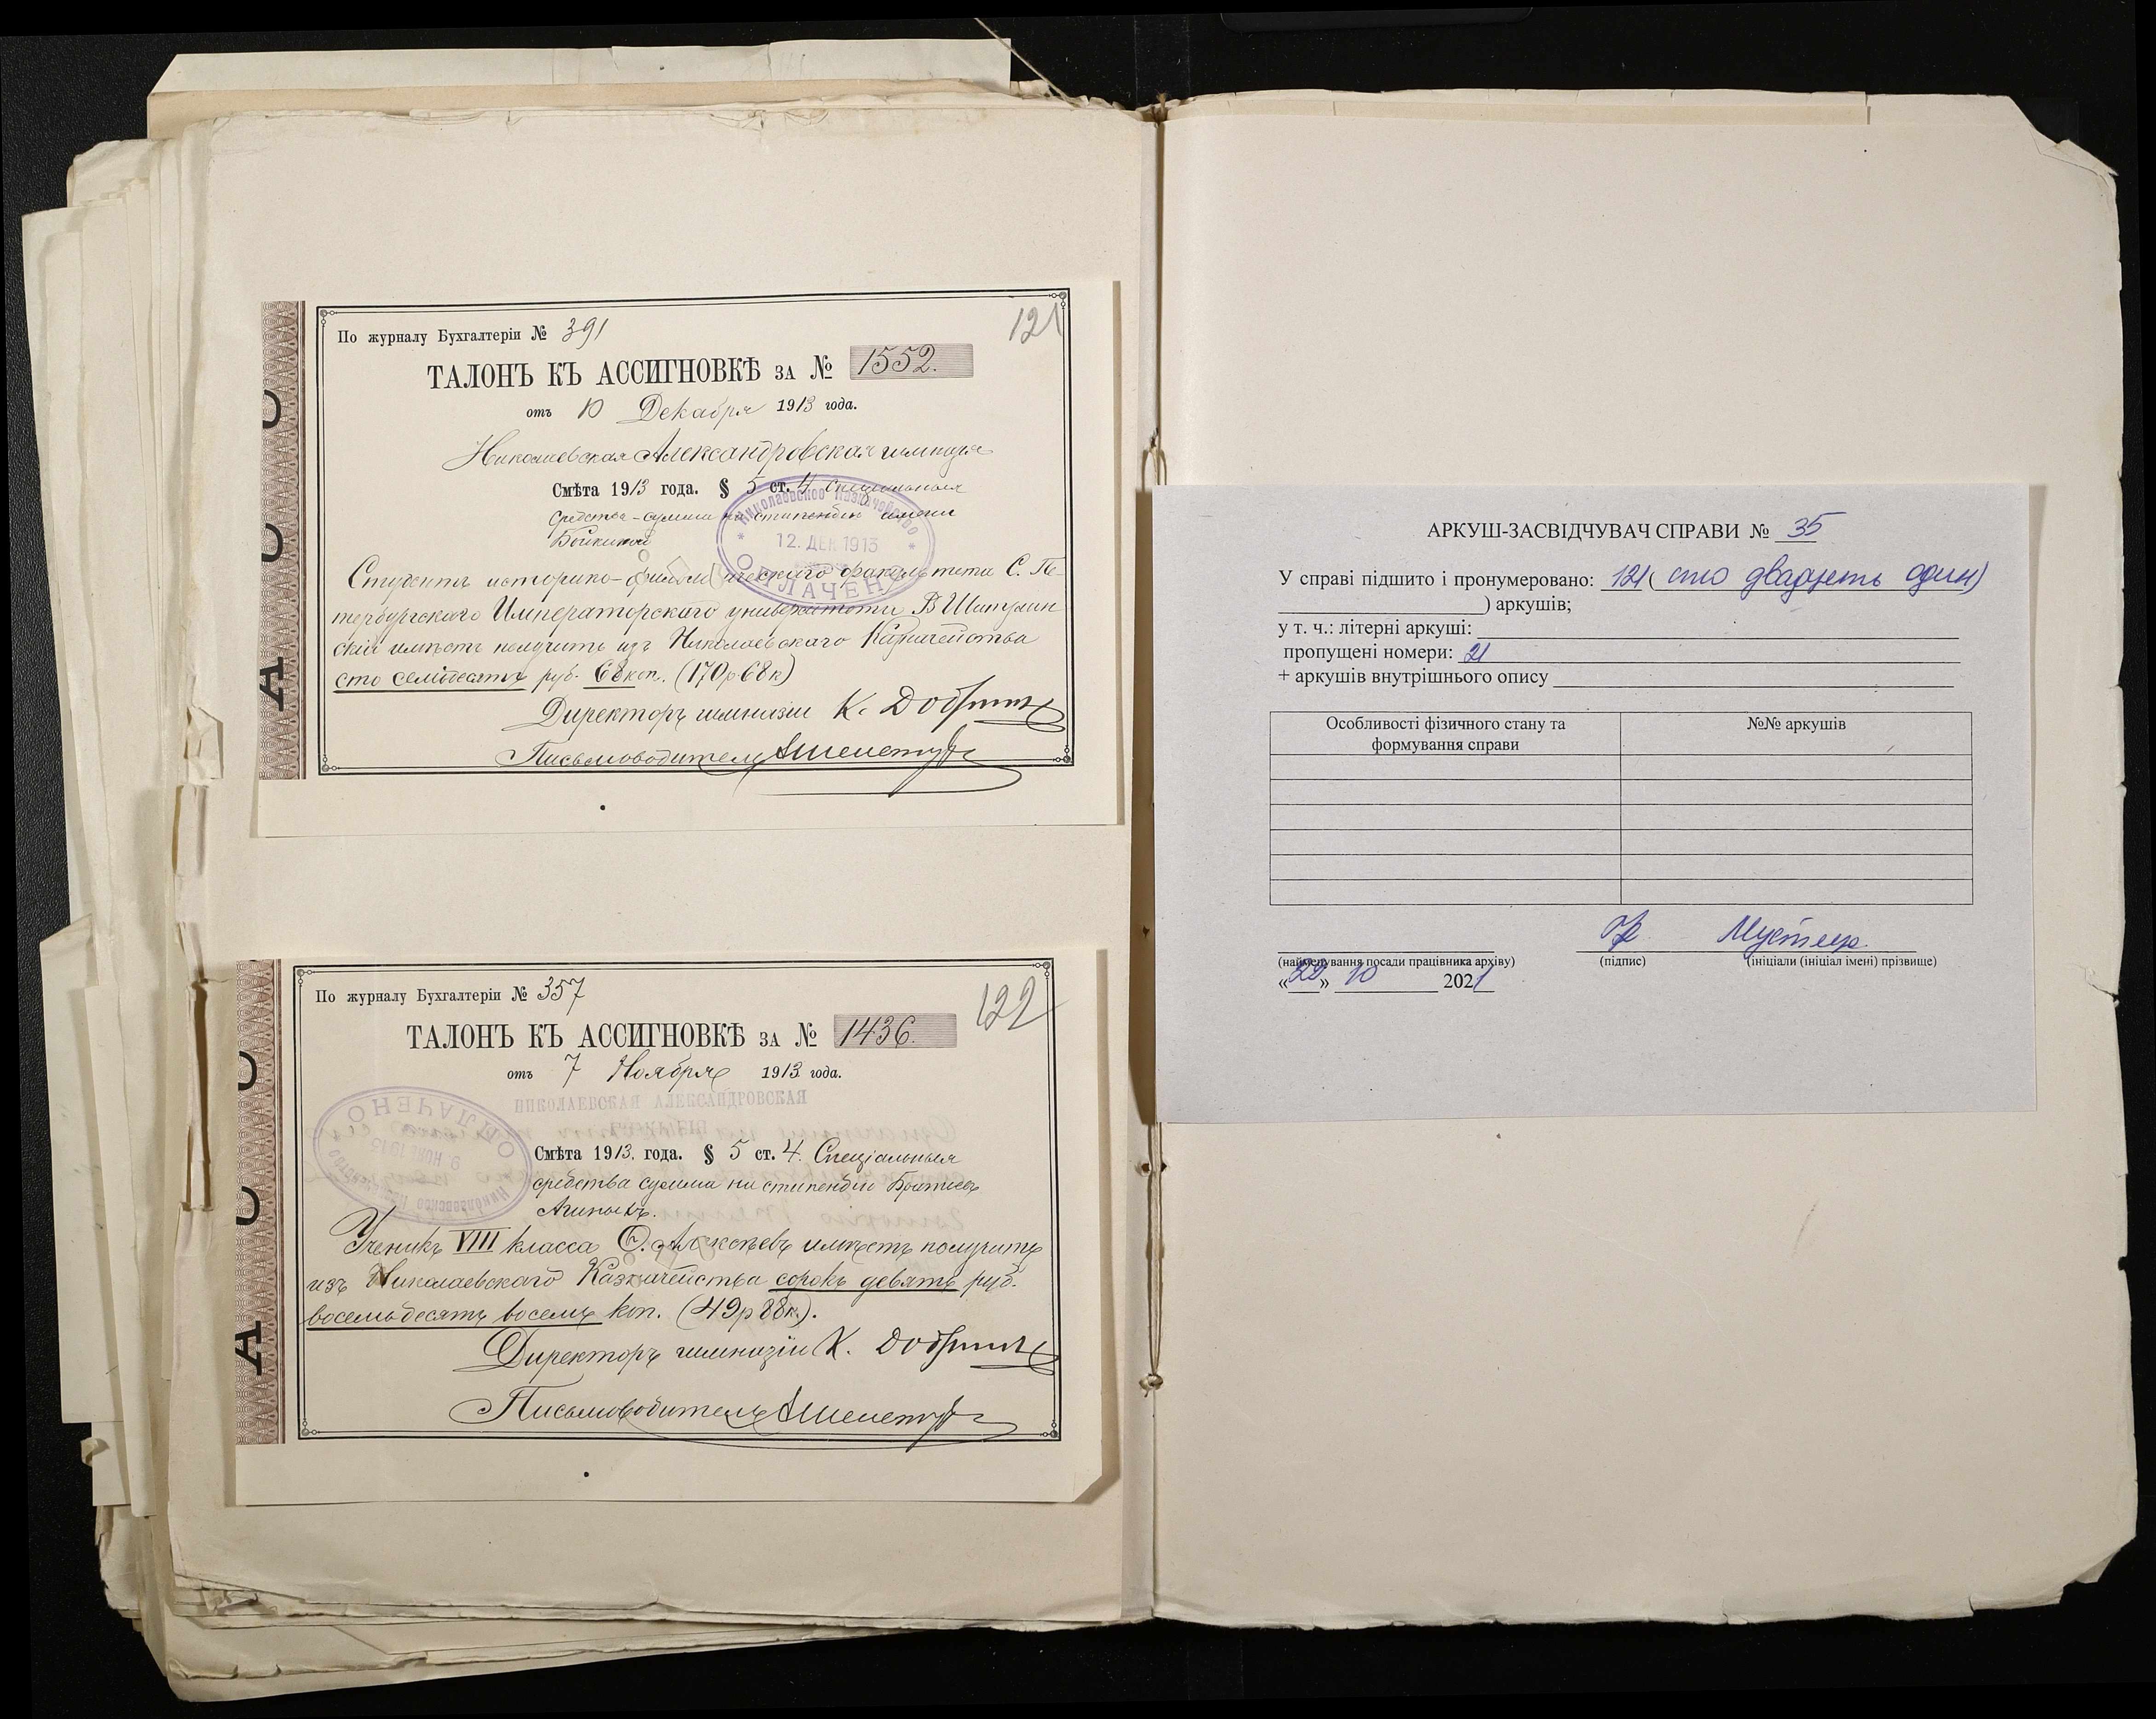 По журналу Бухгалтеріи № 391
121
ТАЛОНЪ КЪ АССИГНОВКѢ ЗА № 1552.
отъ 10 Декабря 1913 года.
Николаевская Александровская гимназія
Смѣта 1913 года. § 5 ст. 4 Спеціальныя
средства - суммы на стипендіи имени
Николаевское Казначейство
12. ДЕК 1913
ОПЛАЧЕНО
Студентъ историко-филологическаго факультета С. Пе-
тербургскаго Императорскаго университета В
скій имѣетъ получить изъ Николаевскаго Казначейства
сто семьдесятъ руб. 68 коп. (170 р 68 к)
Директоръ гимназіи К.
Письмоводитель
По журналу Бухгалтеріи № 357
122
ТАЛОНЪ КЪ АССИГНОВКѢ ЗА № 1436.
отъ 7 Ноября 1913 года.
НИКОЛАЕВСКАЯ АЛЕКСАНДРОВСКАЯ
ОПЛАЧЕНО
9. НОЯ 1913
Николаевское Казначейство
Смѣта 1913. года. § 5 ст. 4. Спеціальныя
средства суммы на стипендіи Братьевъ
Ученикъ VIII класса Ѳ. Алексѣевъ имѣетъ получить
изъ Николаевскаго Казначейства сорокъ девять руб.
восемьдесятъ восемь коп. (49 р 88 к.).
Директоръ гимназіи К.
Письмоводитель
АРКУШ-ЗАСВІДЧУВАЧ СПРАВИ № 35
У справі підшито і пронумеровано: 121 ( сто двадцять один)
) аркушів;
у т. ч.: літерні аркуші:
пропущені номери: 21
+ аркушів внутрішнього опису
Особливості фізичного стану та
формування справи
№№ аркушів
(найменування посади працівника архіву)
(підпис)
(ініціали (ініціал імені) прізвище)
« » 10 2021